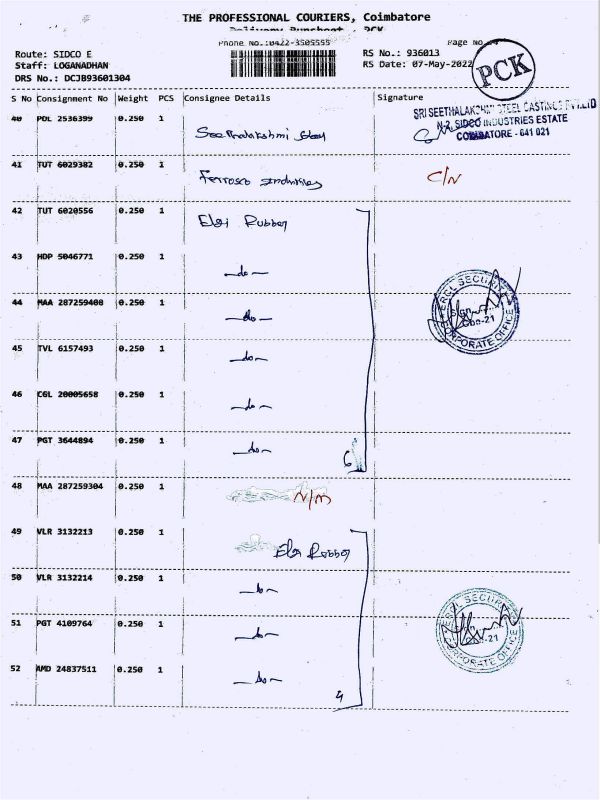 THE PROFESSIONAL COURIERS, Coimbatore
Delivery Runsheet - PCK
Phone No.:0422-3505555
Page No.
Route: SIDCO E
RS No.: 936013
Staff: LOGANADHAN
RS Date: 07-May-2022
DRS No.: DCJB93601304
PCK
S No Consignment No Weight PCS Consignee Details Signature
SRI SEETHALAKSHMI STEEL CASTINGS PVT.LTD
SIDCO INDUSTRIES ESTATE
COIMBATORE - 641 021
40 PDL 2536399 0.250 1 Seethalakshmi
41 TUT 6029382 0.250 1 Ferrosco Industries C/N
42 TUT 6020556 0.250 1 Elgi Rubber
43 HDP 5046771 0.250 1 -do-
44 MAA 287259400 0.250 1 -do-
45 TVL 6157493 0.250 1 -do-
46 CGL 20005658 0.250 1 -do-
47 PGT 3644894 0.250 1 -do-
6
SECURITY
CORPORATE OFFICE
48 MAA 287259304 0.250 1 N/M
49 VLR 3132213 0.250 1 Elgi Rubber
50 VLR 3132214 0.250 1 -do-
51 PGT 4109764 0.250 1 -do-
52 AMD 24837511 0.250 1 -do-
4
SECURITY
CORPORATE OFFICE